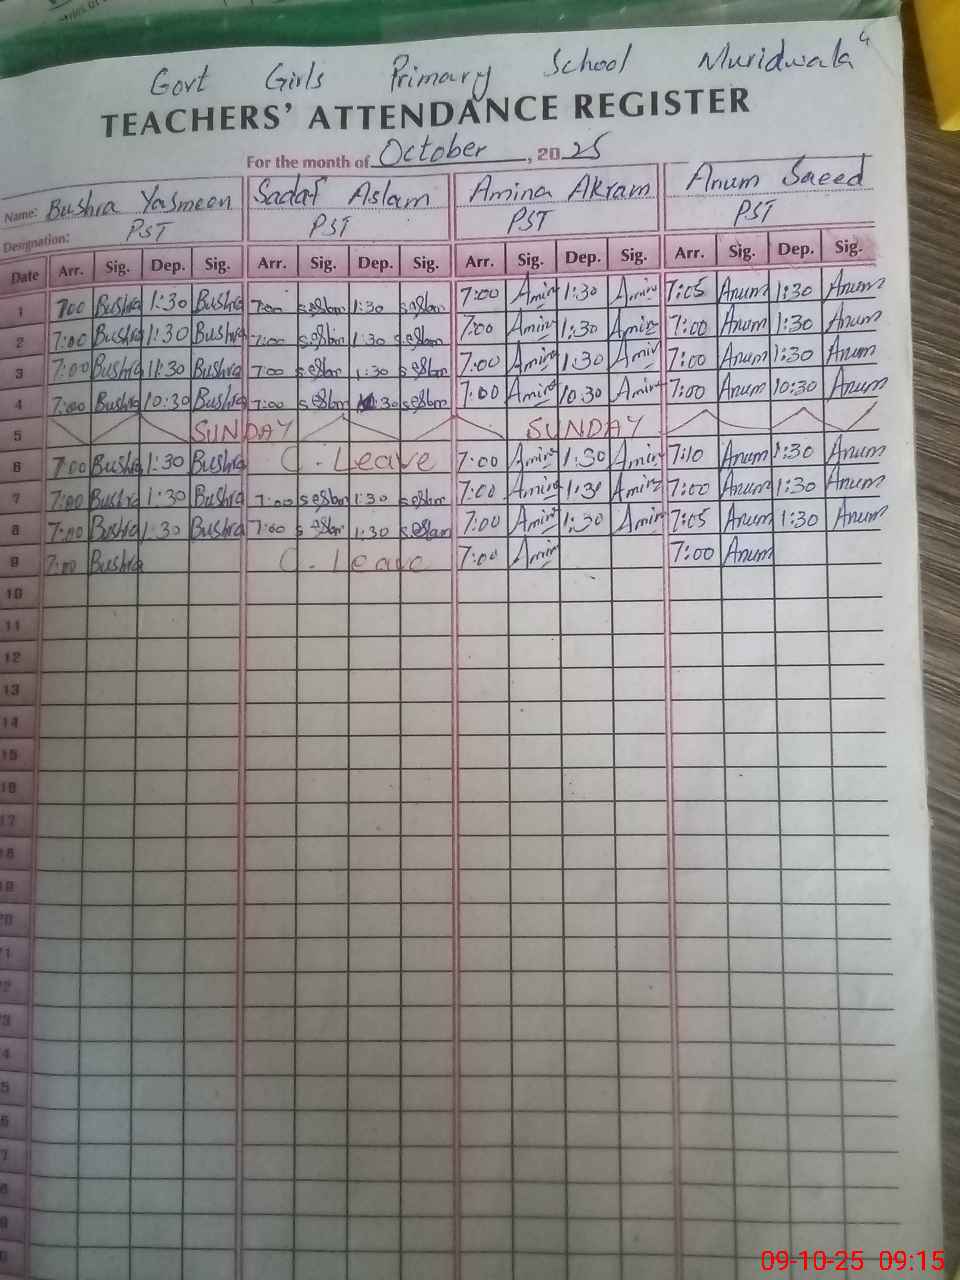 Govt Girls Primary School Muridwala
TEACHERS' ATTENDANCE REGISTER
For the month of October, 2025
Name: Bushra Yasmeen Sadaf Aslam Amina Akram Anum Saeed
Designation: PST PST PST PST
Date Arr. Sig. Dep. Sig. Arr. Sig. Dep. Sig. Arr. Sig. Dep. Sig. Arr. Sig. Dep. Sig.
1 7:00 Bushra 1:30 Bushra 7:00 saslam 1:30 saslam 7:00 Amina 1:30 Amina 7:05 Anum 1:30 Anum
2 7:00 Bushra 1:30 Bushra 7:00 saslam 1:30 saslam 7:00 Amina 1:30 Amina 7:00 Anum 1:30 Anum
3 7:00 Bushra 1:30 Bushra 7:00 saslam 1:30 saslam 7:00 Amina 1:30 Amina 7:00 Anum 1:30 Anum
4 7:00 Bushra 10:30 Bushra 7:00 saslam :30 saslam 7:00 Amina 10:30 Amina 7:00 Anum 10:30 Anum
5 SUNDAY SUNDAY
6 7:00 Bushra 1:30 Bushra C. Leave 7:00 Amina 1:30 Amina 7:10 Anum 1:30 Anum
7 7:00 Bushra 1:30 Bushra 7:00 saslam 1:30 saslam 7:00 Amina 1:30 Amina 7:00 Anum 1:30 Anum
8 7:00 Bushra 1:30 Bushra 7:00 saslam 1:30 saslam 7:00 Amina 1:30 Amina 7:05 Anum 1:30 Anum
9 7:00 Bushra C. Leave 7:00 Amina 7:00 Anum
10
11
12
13
14
15
16
17
18
19
20
21
22
23
24
25
26
27
28
29
30
09-10-25 09:15